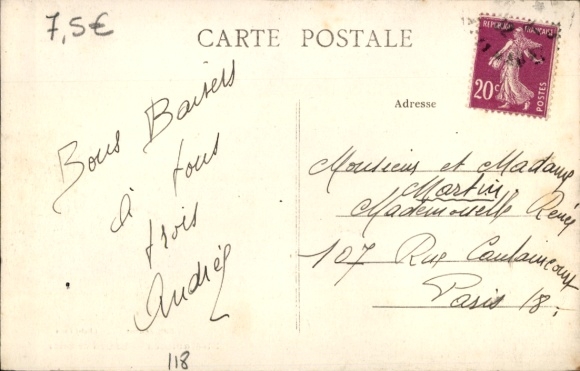 7,5€
CARTE POSTALE
REPUBLIQUE FRANÇAISE
20c
POSTES
Adresse
Bons Baisers
à tous
trois
Andrée
Monsieur et Madame
Martin
Mademoiselle Renée
107 Rue Caulaincourt
Paris 18
118